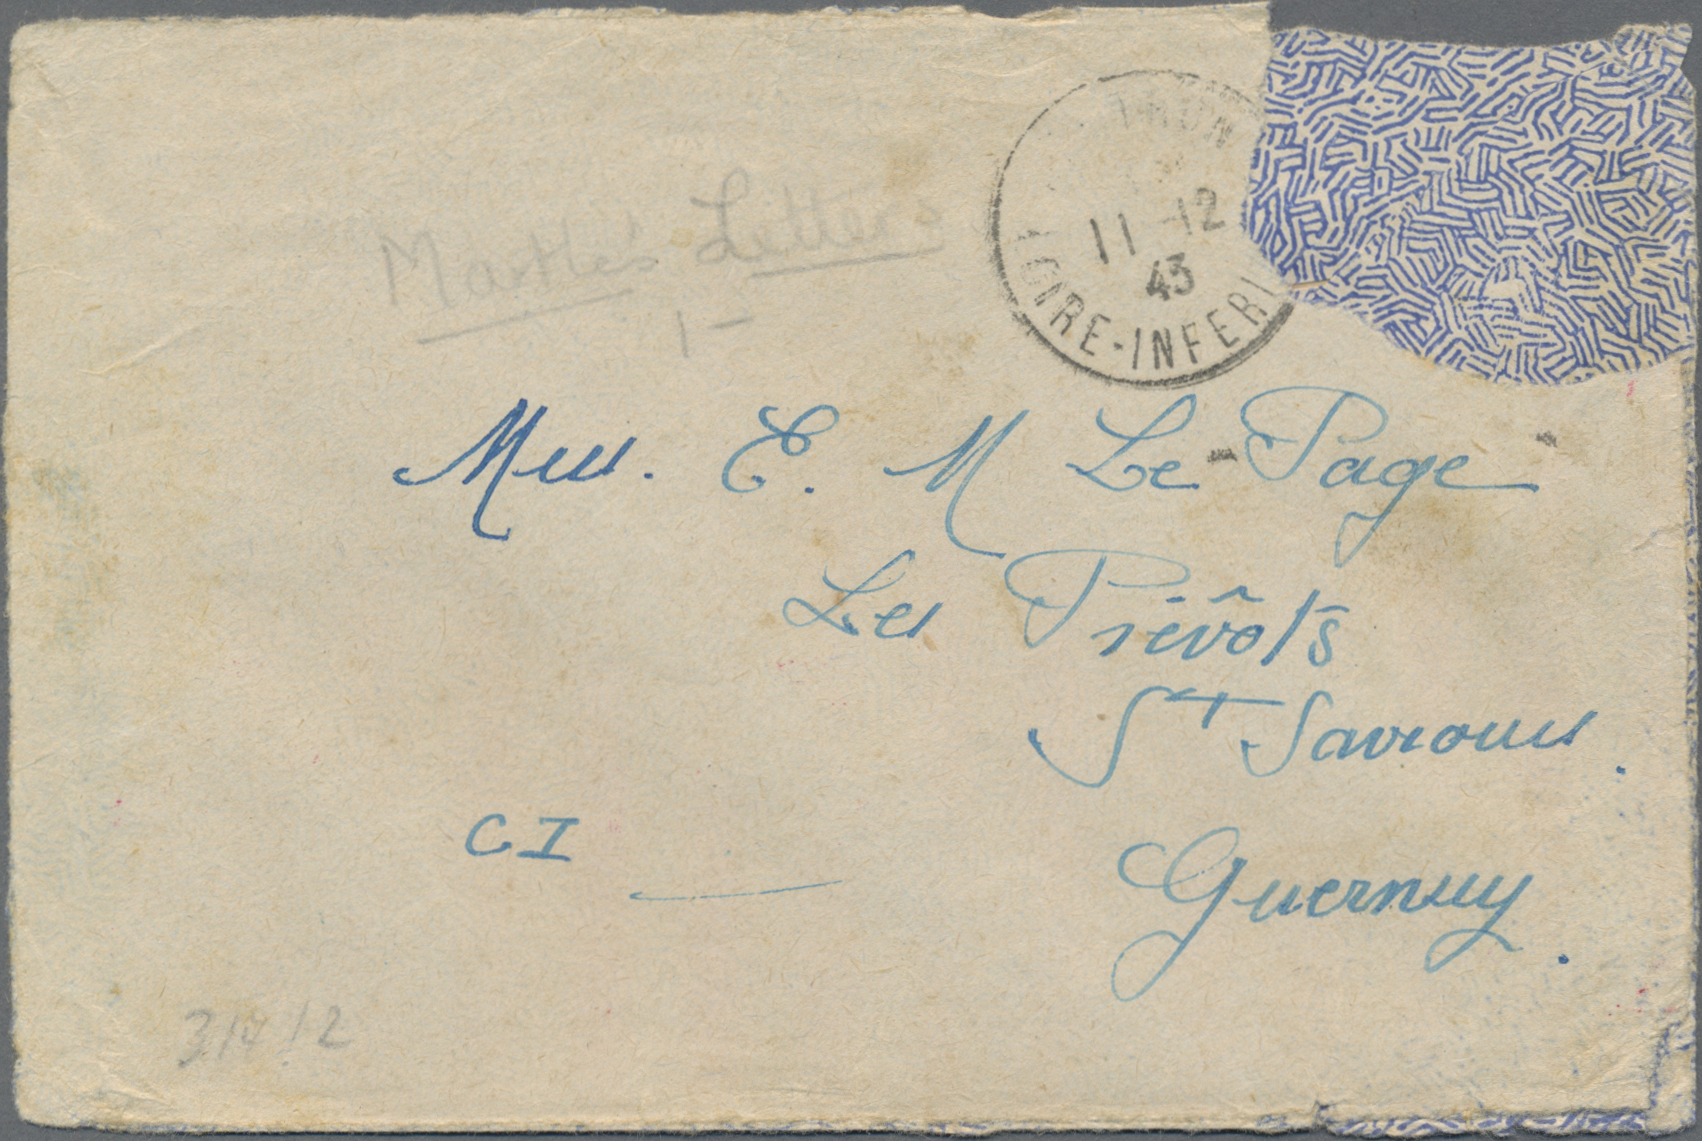 Marthe's Letters
1 -
11-12
43
LOIRE-INFERI
Miss. E. M Le Page
Les Prévôts
St Saviours.
CI
Guernsey.
12